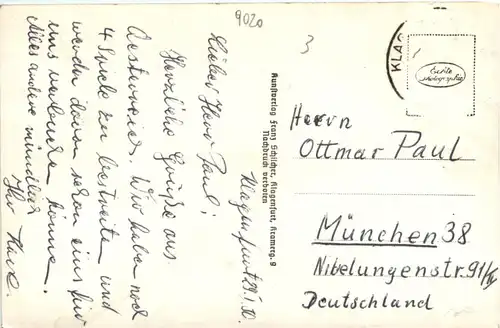 9020
3
KLAG
Echte
Photographie
Klagenfurt 28.1.50.
Lieber Herr Paul!
Herzliche Grüße aus
Oesterreich. Wir haben noch
4 Spiele zu bestreiten und
werden davon schon eins für
uns verbuchen können.
Alles andere mündlich
Ihr
Kunstverlag Franz Schilcher, Klagenfurt, Kramerg. 9
Nachdruck verboten
Herrn
Ottmar Paul
München 38
Nibelungenstr. 91/
Deutschland